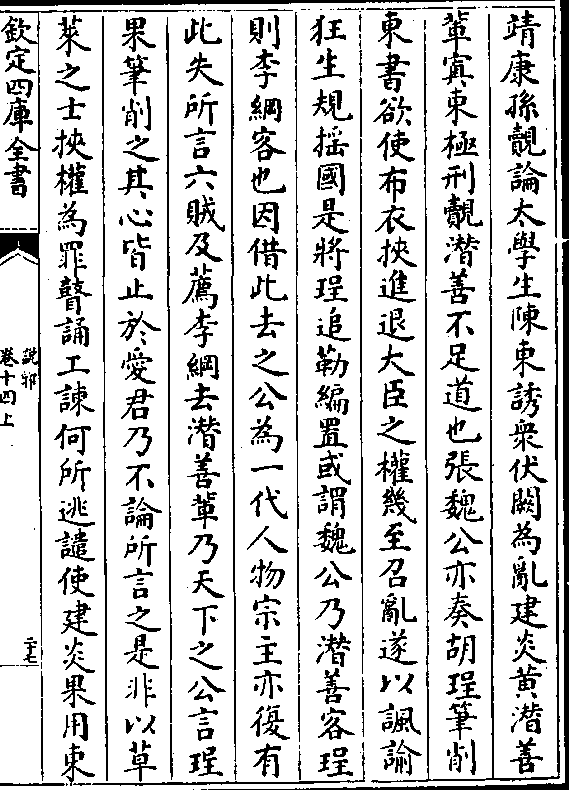 靖康孫覿論大學生陳東誘衆伏闕為亂建炎黃潛善
軰寘東極刑覿潛善不足道也張魏公亦奏胡珵筆削
東書欲使布衣挾進退大臣之權幾至召亂遂以諷諭
狂生規揺國是將珵追勒編置或謂魏公乃潛善客珵
則李綱客也因借此去之公為一代人物宗主亦復有
此失所言六賊及薦李綱去潛善軰乃天下之公言珵
果筆削之其心皆止於愛君乃不論所言之是非以草
萊之士挾權為罪瞽誦工諫何所逃譴使建炎果用東
欽定四庫全書
說郛
卷十四上
二十七